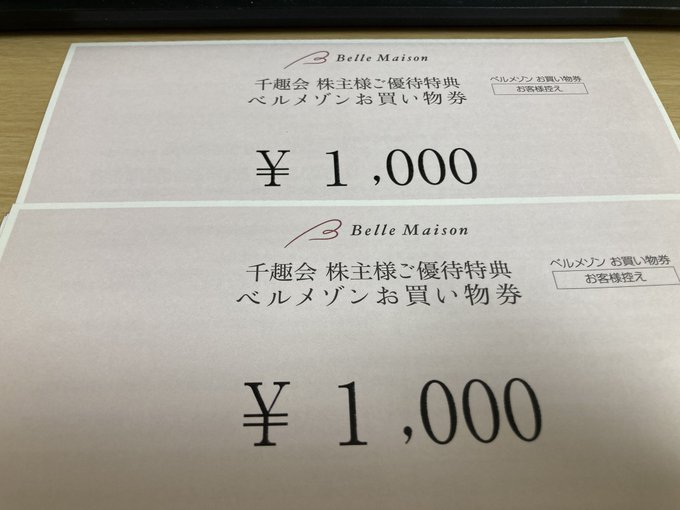 Belle Maison
千趣会 株主様ご優待特典
ベルメゾンお買い物券
ベルメゾン お買い物券
お客様控え
¥ 1,000
Belle Maison
千趣会 株主様ご優待特典
ベルメゾンお買い物券
ベルメゾン お買い物券
お客様控え
¥ 1,000